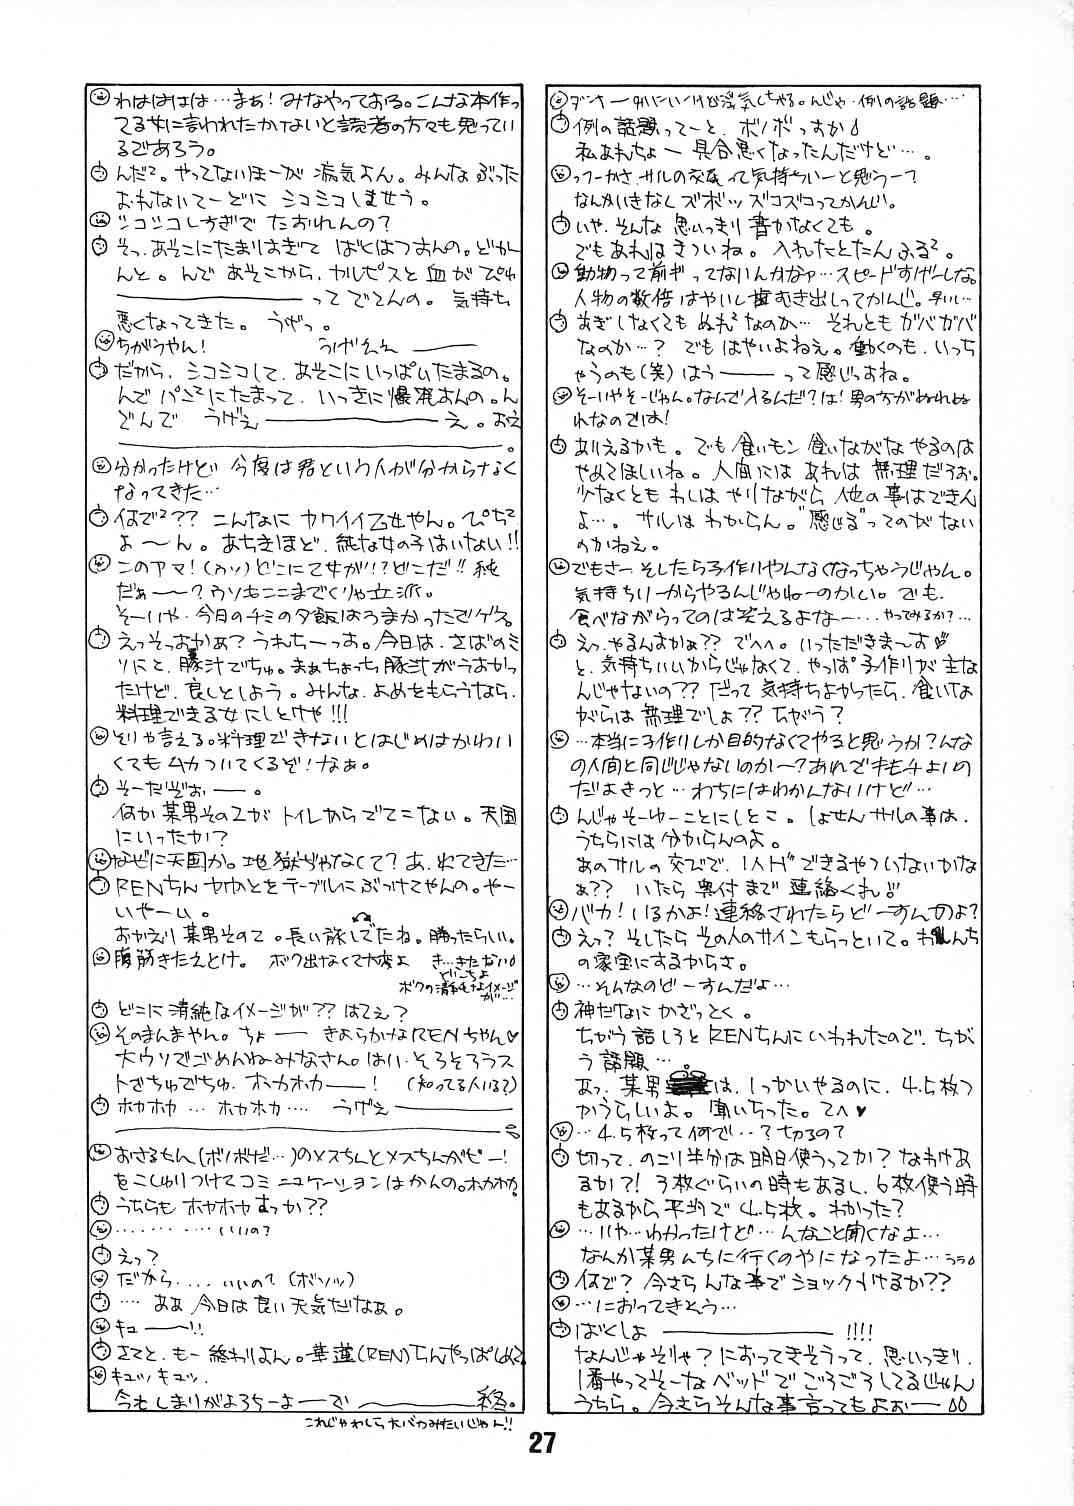 浮気しちゃる。んじゃ・例の話題…
例の話題ってーと、ボノボっすか
私あれちょー具合悪くなったんだけど…。
ってーかさ、サルの交尾って気持ちいーと思うー？
なんかいきなしズボッズコズコってかんじ。
いや、そんな思いっきり書かなくても。
でもあれはきついね。入れたとたんふる²。
動物って前ギってないんかなァ…スピードすげーしな。
人物の数倍はやいし歯むき出しってかんじ。早い…
あぎしなくてもぬれ²なのか…それともガバガバ
なのか…？でもはやいよねえ。働くのも、いっち
ゃうのも(笑)はうーーって感じっすね。
そーいやそーじゃん。なんで入るんだ？は！男の方がぬれぬ
れなのでは！
ありえるかも。でも食いモン食いながなやるのは
やめてほしいね。人間にはあれは無理だろお。
少なくともわしはやりながら他の事はできん
よ…。サルはわからん。"感じる"ってのがない
のかねえ。
でもさー、そしたら子作りやんなくなっちゃうじゃん。
気持ちいーからやるんじゃねーのかい。でも、
食べながらってのは笑えるよなー…、やってみるか？…
えっ、やるんすかぁ？？でへへ。いっただきまーす
と、気持ちいいからじゃなくて、やっぱ子作りが主な
んじゃないの？？だって気持ちよかったら、食いな
がらは無理でしょ？？ちがう？
…本当に子作りしか目的なくてやると思うか？んな
の人間と同じじゃないのか〜？あれでキモチよいの
だよきっと…わちにはわかんないけど…
んじゃそーゆーことにしとこ。しょせんサルの事は、
うちらには分からんのよ。
あのサルの交びで、1人Hできるやついないかな
ぁ？？いたら奥付まで連絡くれ!!
バカ！いるかよ！連絡されたらどーすんのよ？
えっ？そしたらその人のサインもらっといて。わしんち
の家宝にするからさ。
…そんなのどーすんだよ…
神だなにかざっとく。
ちがう話しろとRENちんにいわれたので、ちが
う話題…
あっ、某男は、1っかいやるのに、4.5枚つ
かうらしいよ。聞いちった。てへ♥
…4.5枚って何で…？切るの？
切って、のこり半分は明日使うってか？なわけあ
るか?! 3枚ぐらいの時もあるし、6枚使う時
もあるから平均で4.5枚。わかった？
…いや…わかったけど…んなこと聞くなよ…
なんか某男んちに行くのやになったよ…うう。
何で？今さらんな事でショックうけるか？？
…においってきそう…
ばくしょ————————!!!!
なんじゃそりゃ？においってきそうって、思いっきり、
1番やってそーなベッドでごろごろしてるじゃん
うちら。今さらそんな事言ってもよおー
わはははは…まぁ！みなやっておる。こんな本作っ
てる女に言われたかねないと読者の方々も思ってい
るであろう。
んだ²。やってないほーが病気よん。みんなぶった
おれないてーどにシコシコしませう。
シコシコしすぎでたおれんの？
そっ、あそこにたまりすぎてばくはつすんの。どか
んと。んであそこから、カルピスと血がぴゅ
————————ってでてんの。気持ち
悪くなってきた。うげっ。
ちがうやん！うげええ———
だから、シコシコして、あそこにいっぱいたまるの。
んでパン²にたまって、いっきに爆発すんの。ん
でんでうげえ————————え。おえ
————————————————。
分かったけど今度は君という人が分からなく
なってきた…
何で²？？こんなにカワイイ乙女やん。ぴち²
よ〜ん。あちきほど、純な女の子はいない!!
このアマ！(ウソ)どこに乙女が!?どこだ!!純
だぁ〜？ウソもここまでくりゃ立派。
そーいや、今日のチミの夕飯はうまかったでゲス。
えっそっおかぁ？うれちーっす。今日は、さばのミ
リにと、豚汁でちゅ。まぁちょっち豚汁がうすかっ
たけど、良しとしよう。みんな、よめをもらうなら、
料理できる女にしとけや!!!
そりゃ言える。料理できないとはじめはかわい
くてもムカついてくるぞ！なぁ。
そーだぞぉー。
何か某男その2がトイレからでてこない。天国
にいったか？
なぜに天国か。地獄ぢゃなくて？あ、れてきた…
RENちんヤカンとをテーブルにぶっけてやんの。やー
いやーい。
おかえり某男その2。長い旅してたね。勝ったらしい。
腹筋きたえとけ。ボク出なくて大変よ
き…きたない
どこちよ
ボクの清純なイメージ
が…
どこに清純なイメージが？？はてぇ？
そのまんまやん。ちょーきよらかなRENちゃん♥
大ウソでごめんねみなさん。はい、そろそろラス
トでちゅでちゅ、ホカホカ——！(知ってる人いる？)
ホカホカ…ホカホカ…うげえ——————
————————————————
おさるちん(ボノボだ…)のメスちんとメスちんがビー！
をこしゅりつけてコミュニケーションはかんの。ホカホカ。
うちらもホカホカすっか？？
…………いいの？
えっ？
だから…．いいの？(ボソッ)
…ああ今日は良い天気だなぁ。
キュー——!!
さてと、もー終わりよん。華蓮(REN)ちんやっぱしめて
キュッキュッ、
今もしまりがよろちーよーで————終。
これじゃわしら大バカみたいじゃん!!
27